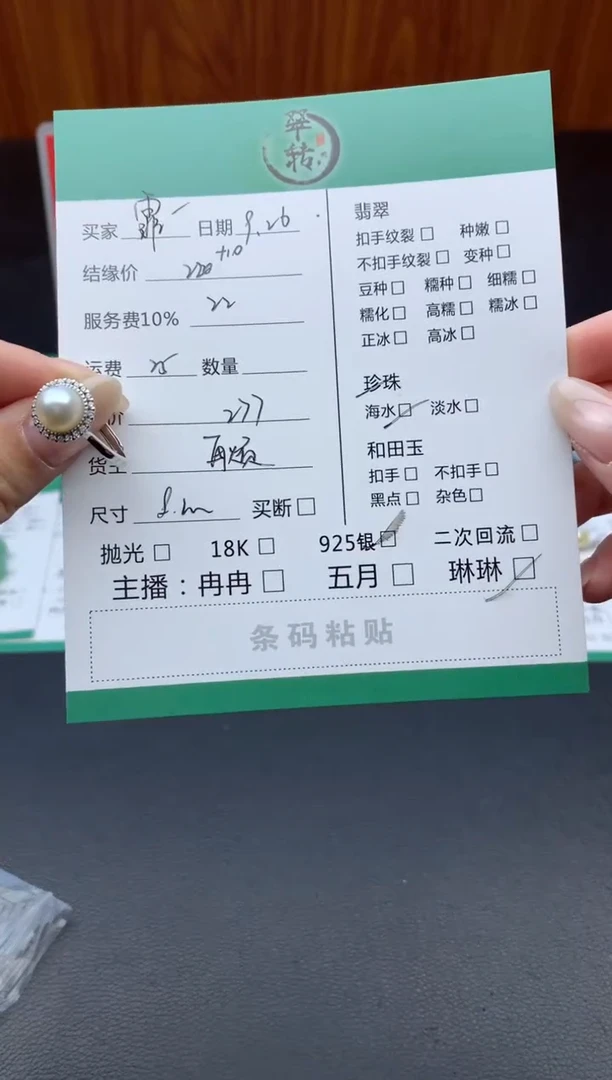 翠转
买家 日期 9.26
结缘价 220 +10
服务费10% 22
运费 25 数量
价 277
货主
尺寸 买断
翡翠
扣手纹裂 种嫩
不扣手纹裂 变种
豆种 糯种 细糯
糯化 高糯 糯冰
正冰 高冰
珍珠
海水 淡水
和田玉
扣手 不扣手
黑点 杂色
抛光 18K 925银 二次回流
主播：冉冉 五月 琳琳
条码粘贴